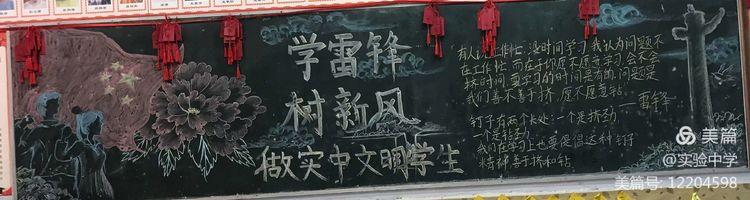 学雷锋
树新风
做实中文明学生
有人说工作忙没时间学习我认为问题不
在工作忙而在于你愿不愿意学习会不会
挤时间要学习的时间是有的问题是
我们善不善于挤愿不愿意钻
——雷锋
钉子有两个长处:一个是挤劲
一个是钻劲
我们在学习上也要提倡这种钉子
精神善于挤和钻
美篇
@实验中学
美篇号:12204598